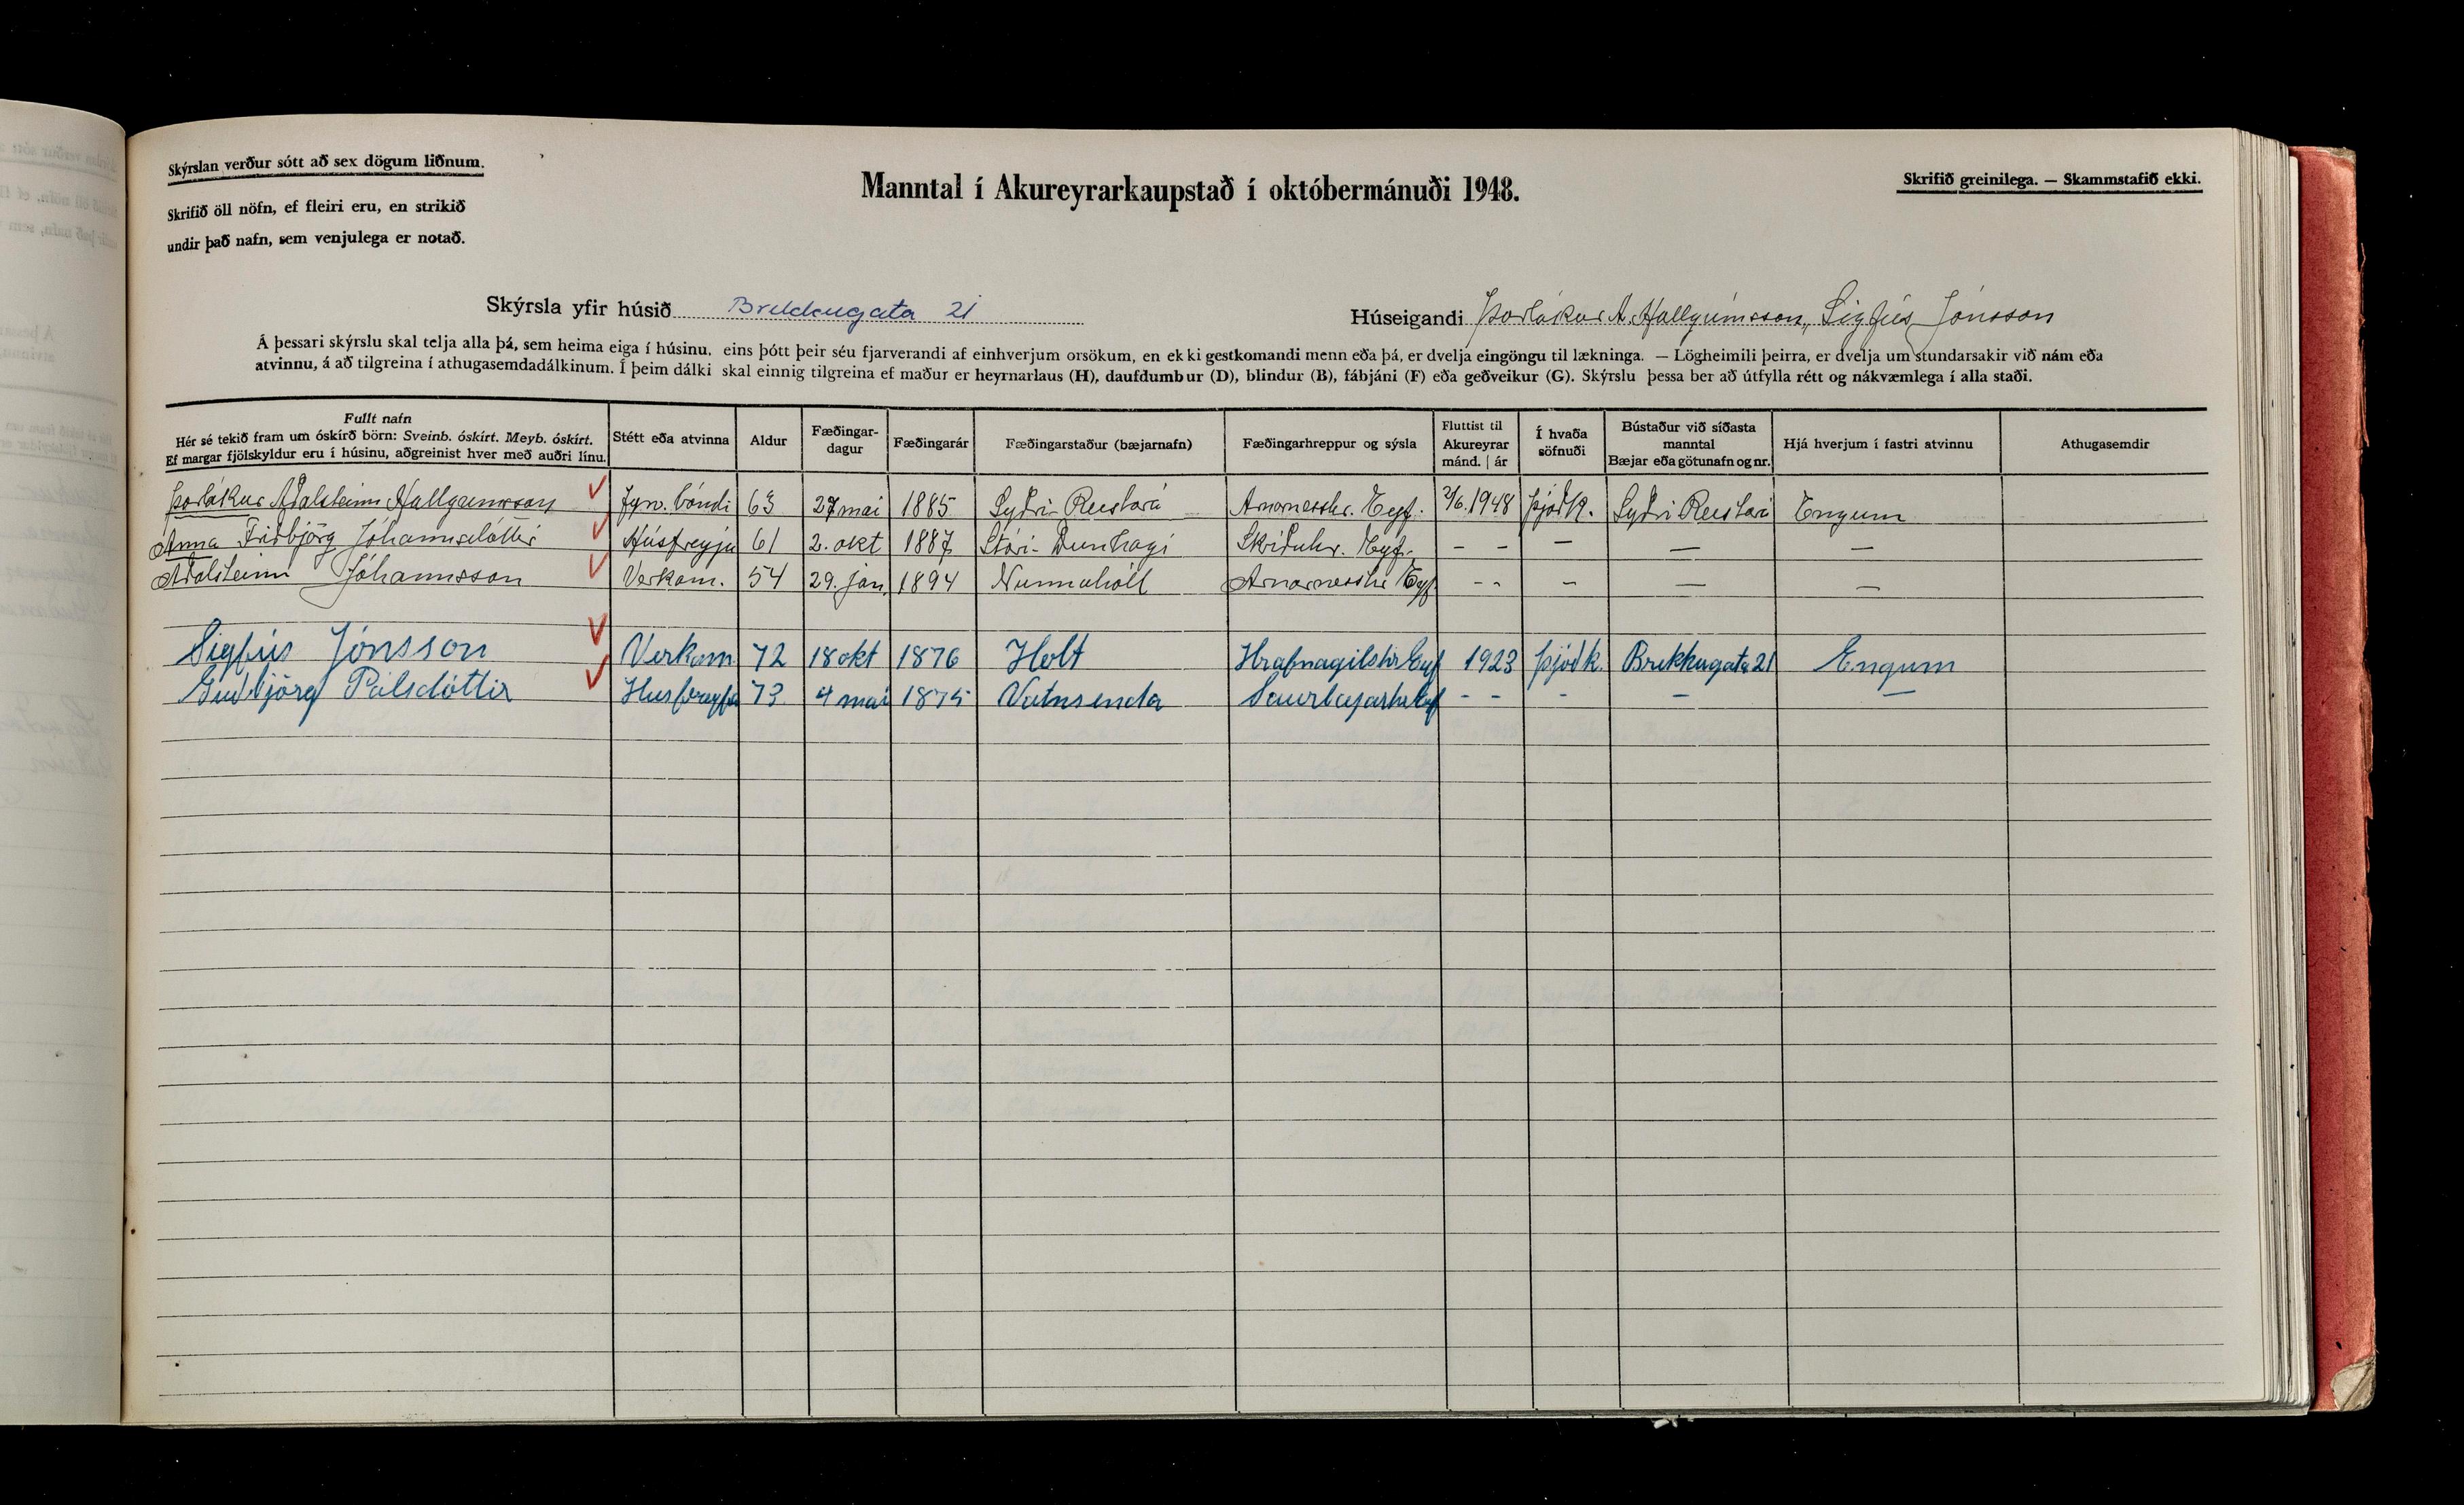 Skýrslan verður sótt að sex dögum liðnum.
Skrifið öll nöfn, ef fleiri eru, en strikið
undir það nafn, sem venjulega er notað.
Manntal í Akureyrarkaupstað í októbermánuði 1948.
Skrifið greinilega. — Skammstafið ekki.
Skýrsla yfir húsið Brekkugata 21
Húseigandi Þorlákur A. Hallgrímsson, Sigfús Jónsson
Á þessari skýrslu skal telja alla þá, sem heima eiga í húsinu, eins þótt þeir séu fjarverandi af einhverjum orsökum, en ekki gestkomandi menn eða þá, er dvelja eingöngu til lækninga. — Lögheimili þeirra, er dvelja um stundarsakir við nám eða
atvinnu, á að tilgreina í athugasemdadálkinum. Í þeim dálki skal einnig tilgreina ef maður er heyrnarlaus (H), daufdumbur (D), blindur (B), fábjáni (F) eða geðveikur (G). Skýrslu þessa ber að útfylla rétt og nákvæmlega í alla staði.
Fullt nafn
Hér sé tekið fram um óskírð börn: Sveinb. óskírt. Meyb. óskírt.
Ef margar fjölskyldur eru í húsinu, aðgreinist hver með auðri línu.
Stétt eða atvinna
Aldur
Fæðingar-
dagur
Fæðingarár
Fæðingarstaður (bæjarnafn)
Fæðingarhreppur og sýsla
Fluttist til
Akureyrar
mánd. | ár
Í hvaða
söfnuði
Bústaður við síðasta
manntal
Bæjar eða götunafn og nr.
Hjá hverjum í fastri atvinnu
Athugasemdir
Þorlákur Aðalsteinn Hallgrímsson fyrv. bóndi 63 27 mai 1885 Syðri-Reistará Arnarneshr. Eyf. 2/6.1948 Þjóðk. Syðri Reistará Engum
Anna Friðbjörg Jóhannsdóttir Húsfreyja 61 2. okt 1887 Stóri-Dunhagi Skriðuhr. Eyf. - - - — —
Aðalsteinn Jóhannsson Verkam. 54 29. jan. 1894 Nunnuhóll Arnarneshr Eyf. - - - — —
Sigfús Jónsson Verkam 72 18 okt 1876 Holt Hrafnagilshr Eyf 1923 Þjóðk. Brekkugata 21 Engum
Guðbjörg Pálsdóttir Husfreyja 73 4 mai 1875 Vatnsenda Saurbæjarhr Eyf - - - — —